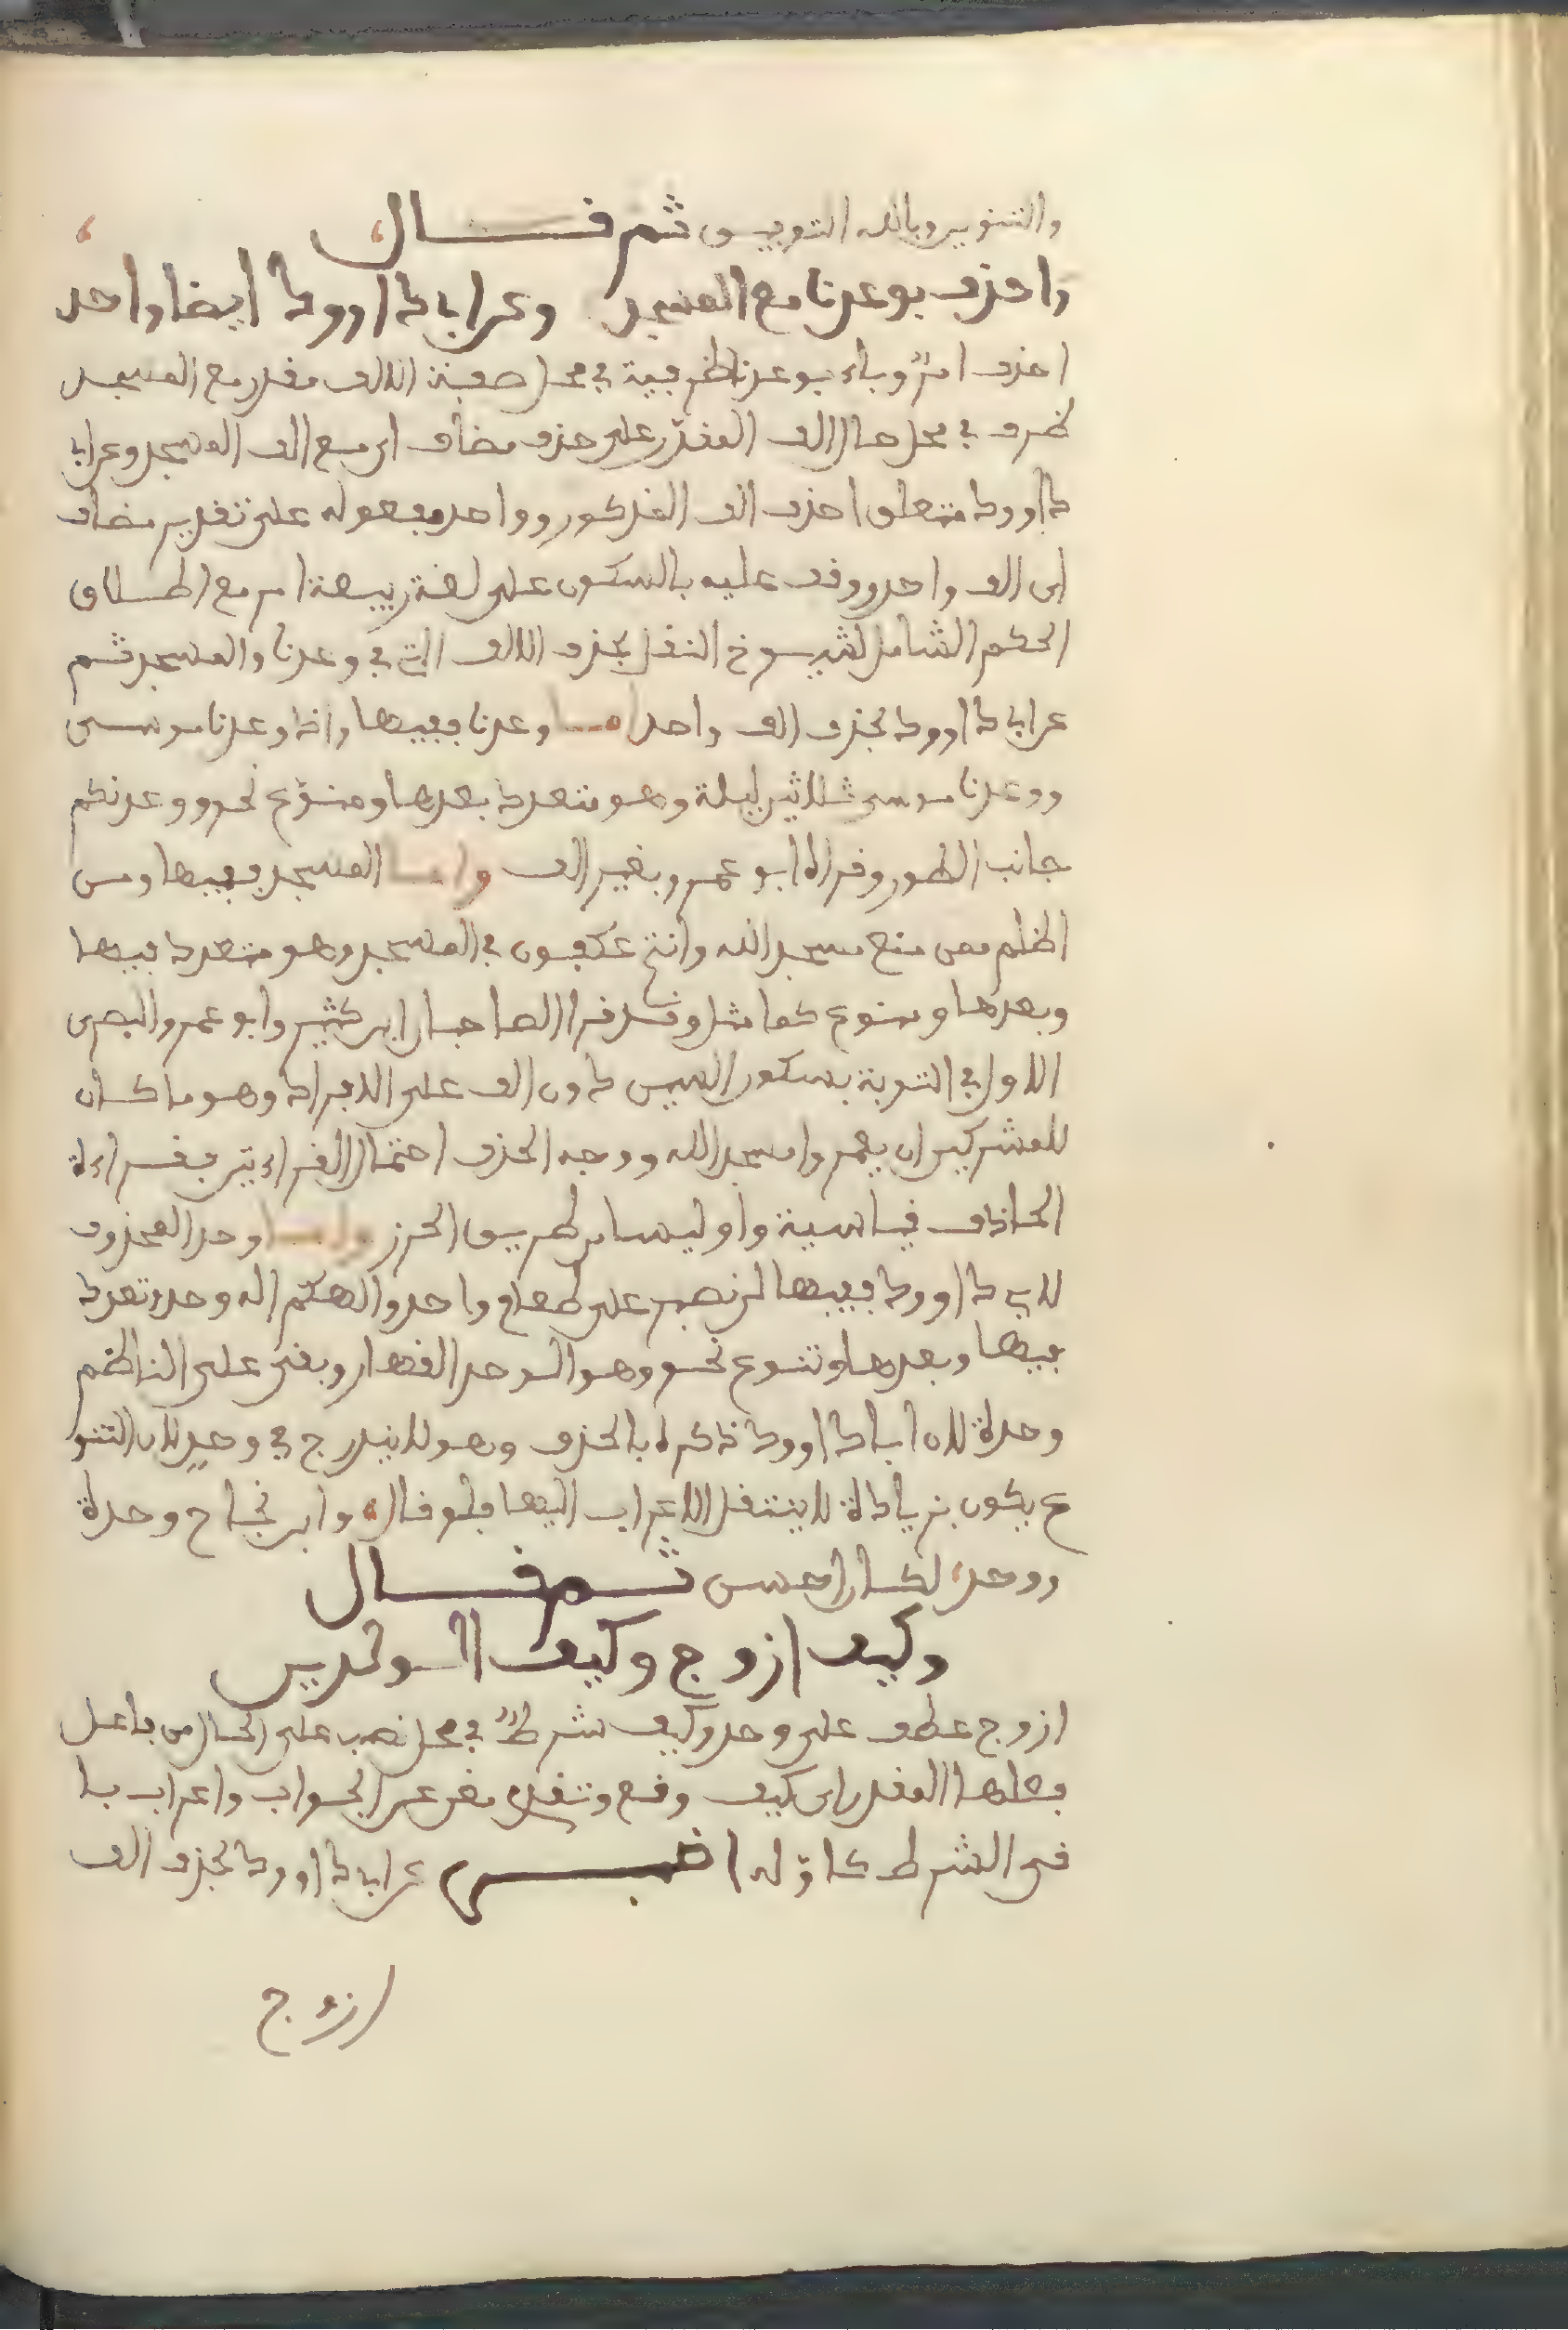 والتنوير وبالله التوفيق ثم قال
واحذف بوعدنا مع المسجد وعن ابي داوود ايضا واحد
احذف امر وباء بوعدنا ظرفية في محل صفة الالف مقدر مع المسجد
ظرف في محل حال الالف المقدر على حذف مضاف اي مع الف المسجد وعن ابي
داوود متعلق احذف الف المذكور وواحد مفعوله على تقدير مضاف
اي الف واحد ووقف عليه بالسكون على لغة ربيعة امر مع اطلاق
الحكم الشامل لشيوخ النقل بحذف الالف التي في وعدنا والمسجد ثم
عن ابي داوود بحذف الف واحد اما وعدنا ففيها واذ وعدنا موسى
ووعدنا موسى ثلاثين ليلة وهو متعدد بعدها ومنوع نحو ووعدنكم
جانب الطور وقراه ابو عمرو بغير الف واما المسجد ففيها ومن
اظلم ممن منع مسجد الله وانتم عكفون في المسجد وهو متعدد فيها
وبعدها ومنوع كما مثل وقد قرا الصاحبان ابن كثير وابو عمرو البصري
الاول في التوبة بسكون السين دون الف على الافراد وهو ما كان
للمشركين ان يعمروا مسجد الله ووجه الحذف احتمال القراءتين فقراءة
الحاذف قياسية واوليسا من طريق الحرز واما وحد المحذوف
لابي داوود ففيها لن نصبر على طعام واحد والهكم اله وحد وتعدد
فيها وبعدها وتنوع نحو وهو الوحد القهار وبقي على الناظم
وحدة لان ابا داوود ذكره بالحذف وهو لا يندرج في وحد لان التنو
ع يكون بزيادة لا ينتقل الاعراب اليها فلو قال وابن نجاح وحدة
ووحد لكان احسن ثم قال
وكيف ازوج وكيف الوالدين
ازوج عطف على وحد وكيف شرط في محل نصب على الحال من فاعل
فعلها المقدر اي كيف وقع وتقدم مغن عن الجواب واعراب با
في الشرط كاوله اخبر عن ابي داوود بحذف الف
ازوج